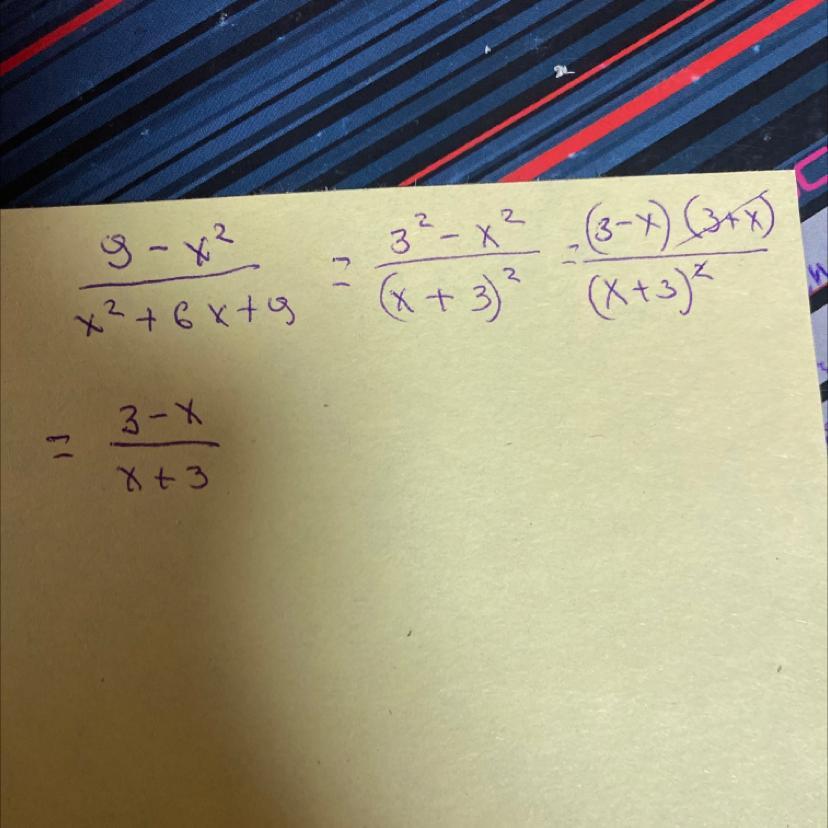 9 - x² / x² + 6x + 9 = 3² - x² / (x + 3)² = (3 - x) (3 + x) / (x + 3)²
= 3 - x / x + 3